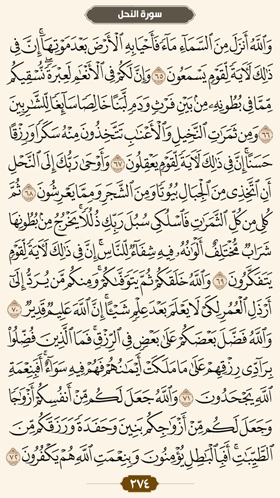 سورة النحل
وَٱللَّهُ أَنزَلَ مِنَ ٱلسَّمَآءِ مَآءً فَأَحْيَا بِهِ ٱلْأَرْضَ بَعْدَ مَوْتِهَآ إِنَّ فِى
ذَٰلِكَ لَءَايَةً لِّقَوْمٍ يَسْمَعُونَ ٦٥ وَإِنَّ لَكُمْ فِى ٱلْأَنْعَٰمِ لَعِبْرَةً نُّسْقِيكُم
مِّمَّا فِى بُطُونِهِۦ مِنۢ بَيْنِ فَرْثٍ وَدَمٍ لَّبَنًا خَالِصًا سَآئِغًا لِّلشَّٰرِبِينَ
٦٦ وَمِن ثَمَرَٰتِ ٱلنَّخِيلِ وَٱلْأَعْنَٰبِ تَتَّخِذُونَ مِنْهُ سَكَرًا وَرِزْقًا
حَسَنًا إِنَّ فِى ذَٰلِكَ لَءَايَةً لِّقَوْمٍ يَعْقِلُونَ ٦٧ وَأَوْحَىٰ رَبُّكَ إِلَى ٱلنَّحْلِ
أَنِ ٱتَّخِذِى مِنَ ٱلْجِبَالِ بُيُوتًا وَمِنَ ٱلشَّجَرِ وَمِمَّا يَعْرِشُونَ ٦٨ ثُمَّ
كُلِى مِن كُلِّ ٱلثَّمَرَٰتِ فَٱسْلُكِى سُبُلَ رَبِّكِ ذُلُلًا يَخْرُجُ مِنۢ بُطُونِهَا
شَرَابٌ مُّخْتَلِفٌ أَلْوَٰنُهُۥ فِيهِ شِفَآءٌ لِّلنَّاسِ إِنَّ فِى ذَٰلِكَ لَءَايَةً لِّقَوْمٍ
يَتَفَكَّرُونَ ٦٩ وَٱللَّهُ خَلَقَكُمْ ثُمَّ يَتَوَفَّىٰكُمْ وَمِنكُم مَّن يُرَدُّ إِلَىٰٓ
أَرْذَلِ ٱلْعُمُرِ لِكَىْ لَا يَعْلَمَ بَعْدَ عِلْمٍ شَيْـًٔا إِنَّ ٱللَّهَ عَلِيمٌ قَدِيرٌ ٧٠
وَٱللَّهُ فَضَّلَ بَعْضَكُمْ عَلَىٰ بَعْضٍ فِى ٱلرِّزْقِ فَمَا ٱلَّذِينَ فُضِّلُوا۟
بِرَآدِّى رِزْقِهِمْ عَلَىٰ مَا مَلَكَتْ أَيْمَٰنُهُمْ فَهُمْ فِيهِ سَوَآءٌ أَفَبِنِعْمَةِ
ٱللَّهِ يَجْحَدُونَ ٧١ وَٱللَّهُ جَعَلَ لَكُم مِّنْ أَنفُسِكُمْ أَزْوَٰجًا
وَجَعَلَ لَكُم مِّنْ أَزْوَٰجِكُم بَنِينَ وَحَفَدَةً وَرَزَقَكُم مِّنَ
ٱلطَّيِّبَٰتِ أَفَبِٱلْبَٰطِلِ يُؤْمِنُونَ وَبِنِعْمَتِ ٱللَّهِ هُمْ يَكْفُرُونَ ٧٢
٢٧٤